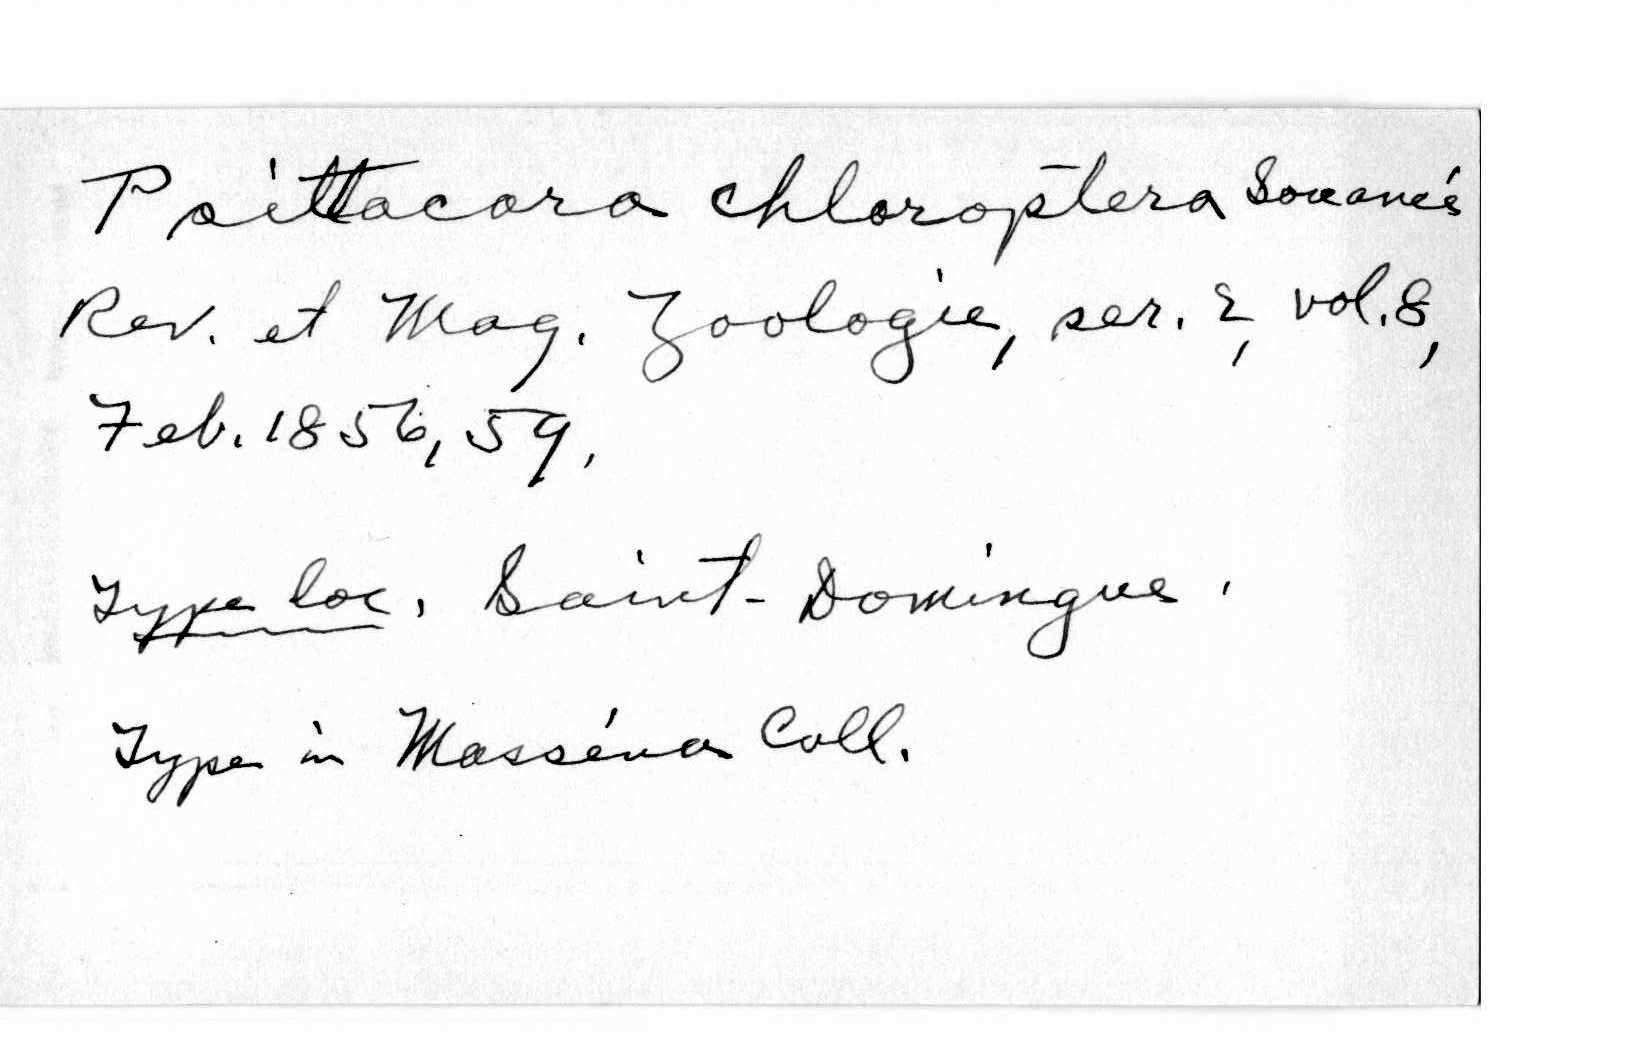 Psittacara chloroptera Souancé
Rev. et Mag. Zoologie, ser. 2, vol. 8,
Feb. 1856, 59.
Type loc. Saint-Domingue.
Type in Masséna Coll.